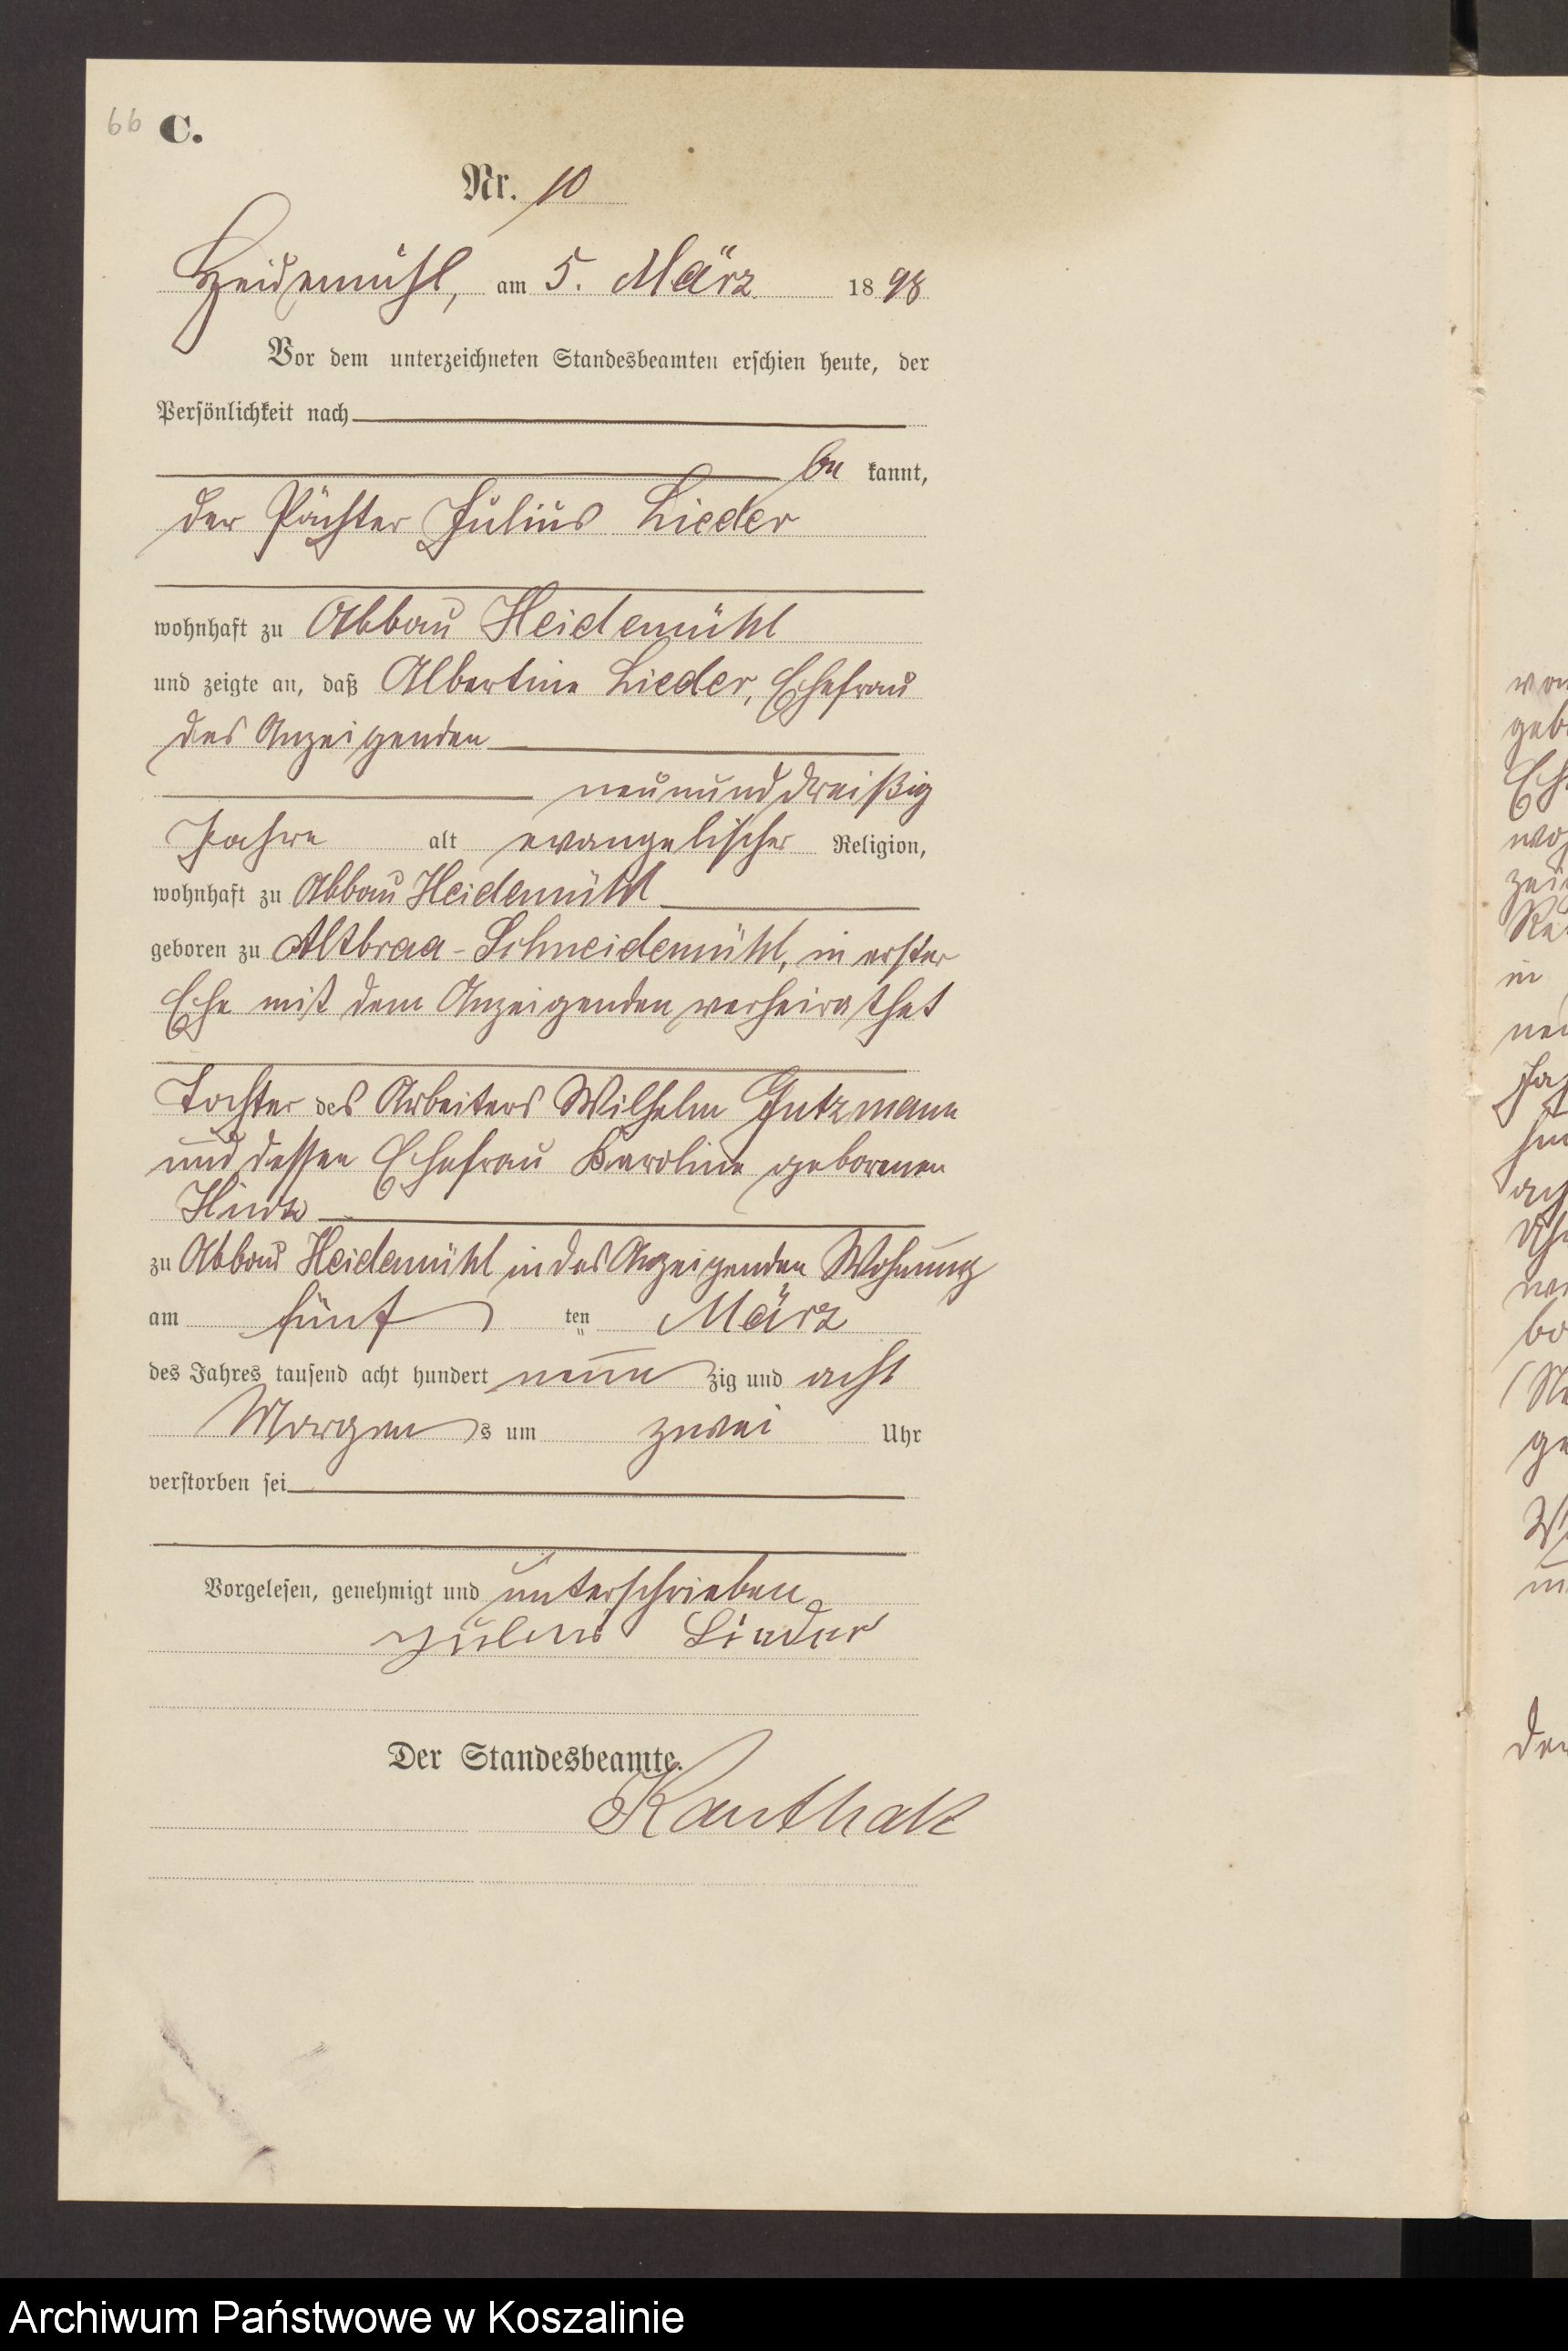 66 C.
Nr. 10
Heidemühl, am 5. März 1898
Vor dem unterzeichneten Standesbeamten erschien heute, der
Persönlichkeit nach
be kannt,
der Pächter Julius Lieder
wohnhaft zu Abbau Heidemühl
und zeigte an, daß Albertine Lieder, Ehefrau
des Anzeigenden
neununddreißig
Jahre alt evangelischer Religion,
wohnhaft zu Abbau Heidemühl
geboren zu Altbraa-Schneidemühl, in erster
Ehe mit dem Anzeigenden verheirathet
Tochter des Arbeiters Wilhelm Gutzmann
und dessen Ehefrau Karoline geborenen
zu Abbau Heidemühl in des Anzeigenden Wohnung
am fünf ten März
des Jahres tausend acht hundert neun zig und acht
Morgen s um zwei Uhr
verstorben sei
Vorgelesen, genehmigt und unterschrieben
Julius Lieder
Der Standesbeamte.
Kauthak
Archiwum Państwowe w Koszalinie